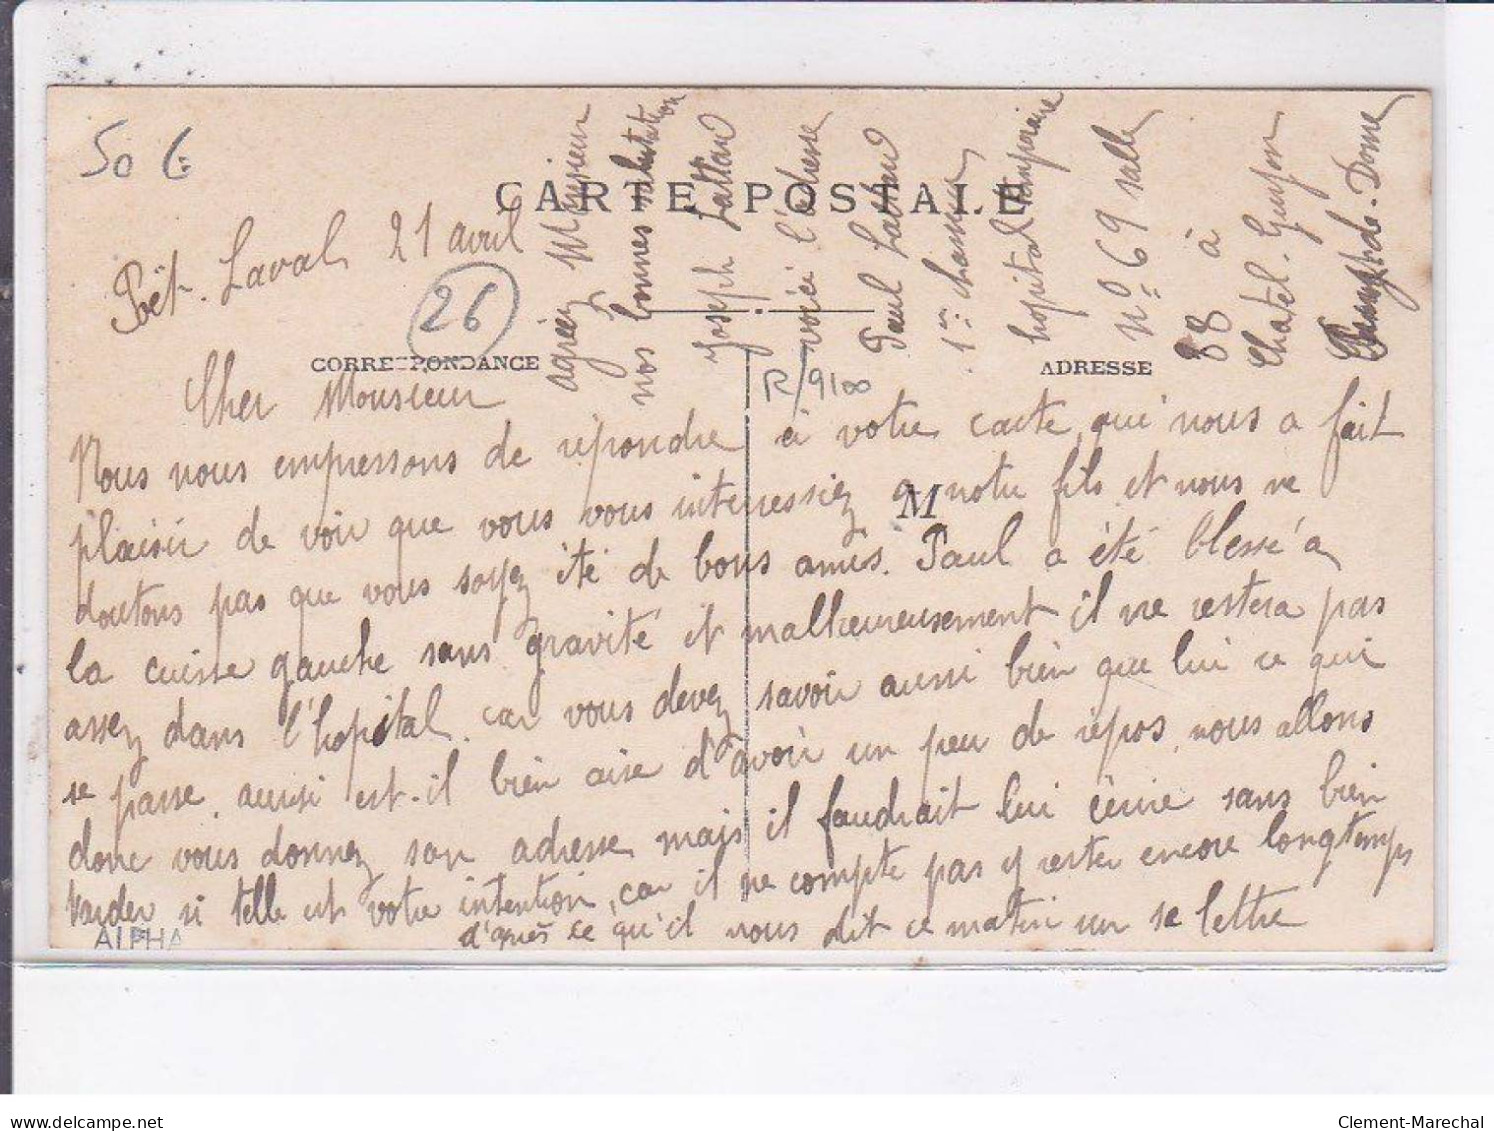 50 €
CARTE POSTALE
Poët-Laval 21 avril
26
CORRESPONDANCE
ADRESSE
R/9100
M
Cher Monsieur
Nous nous empressons de répondre à votre carte qui nous a fait
plaisir de voir que vous vous interressiez a notre fils et nous ne
doutons pas que vous soyez été de bons amis. Paul a été blessé a
la cuisse gauche sans gravité et malheureusement il ne restera pas
assez dans l'hopital. car vous devez savoir aussi bien que lui ce qui
se passe. aussi est-il bien aise d'avoir un peu de repos, nous allons
donc vous donnez son adresse mais il faudrait lui écrire sans bien
tarder si telle est votre intention, car il ne compte pas y rester encore longtemps
d'après ce qu'il nous dit ce matin sur sa lettre
agréez Monsieur
nos bonnes salutation
Joseph
voici l'adresse
Paul
1er
hopital temporaire
No 69 salle
88 à
Chatel-Guyon
Puy-de-Dome
ALPHA
www.delcampe.net
Clement-Marechal